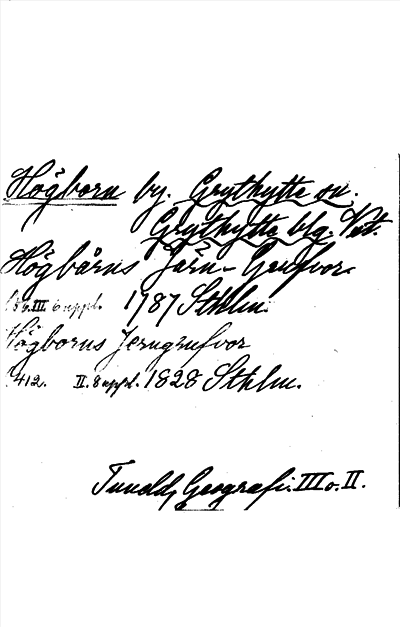 Högborn by. Grythytte sn.
Grythytte blg. Vstl.
Högbårns Järn-Grufvor
III 6 uppl. 1787 Sthlm.
Högborns Jerngrufvor
412. II. 8 uppl. 1828 Sthlm.
Tuneld, Geografi. III o. II.